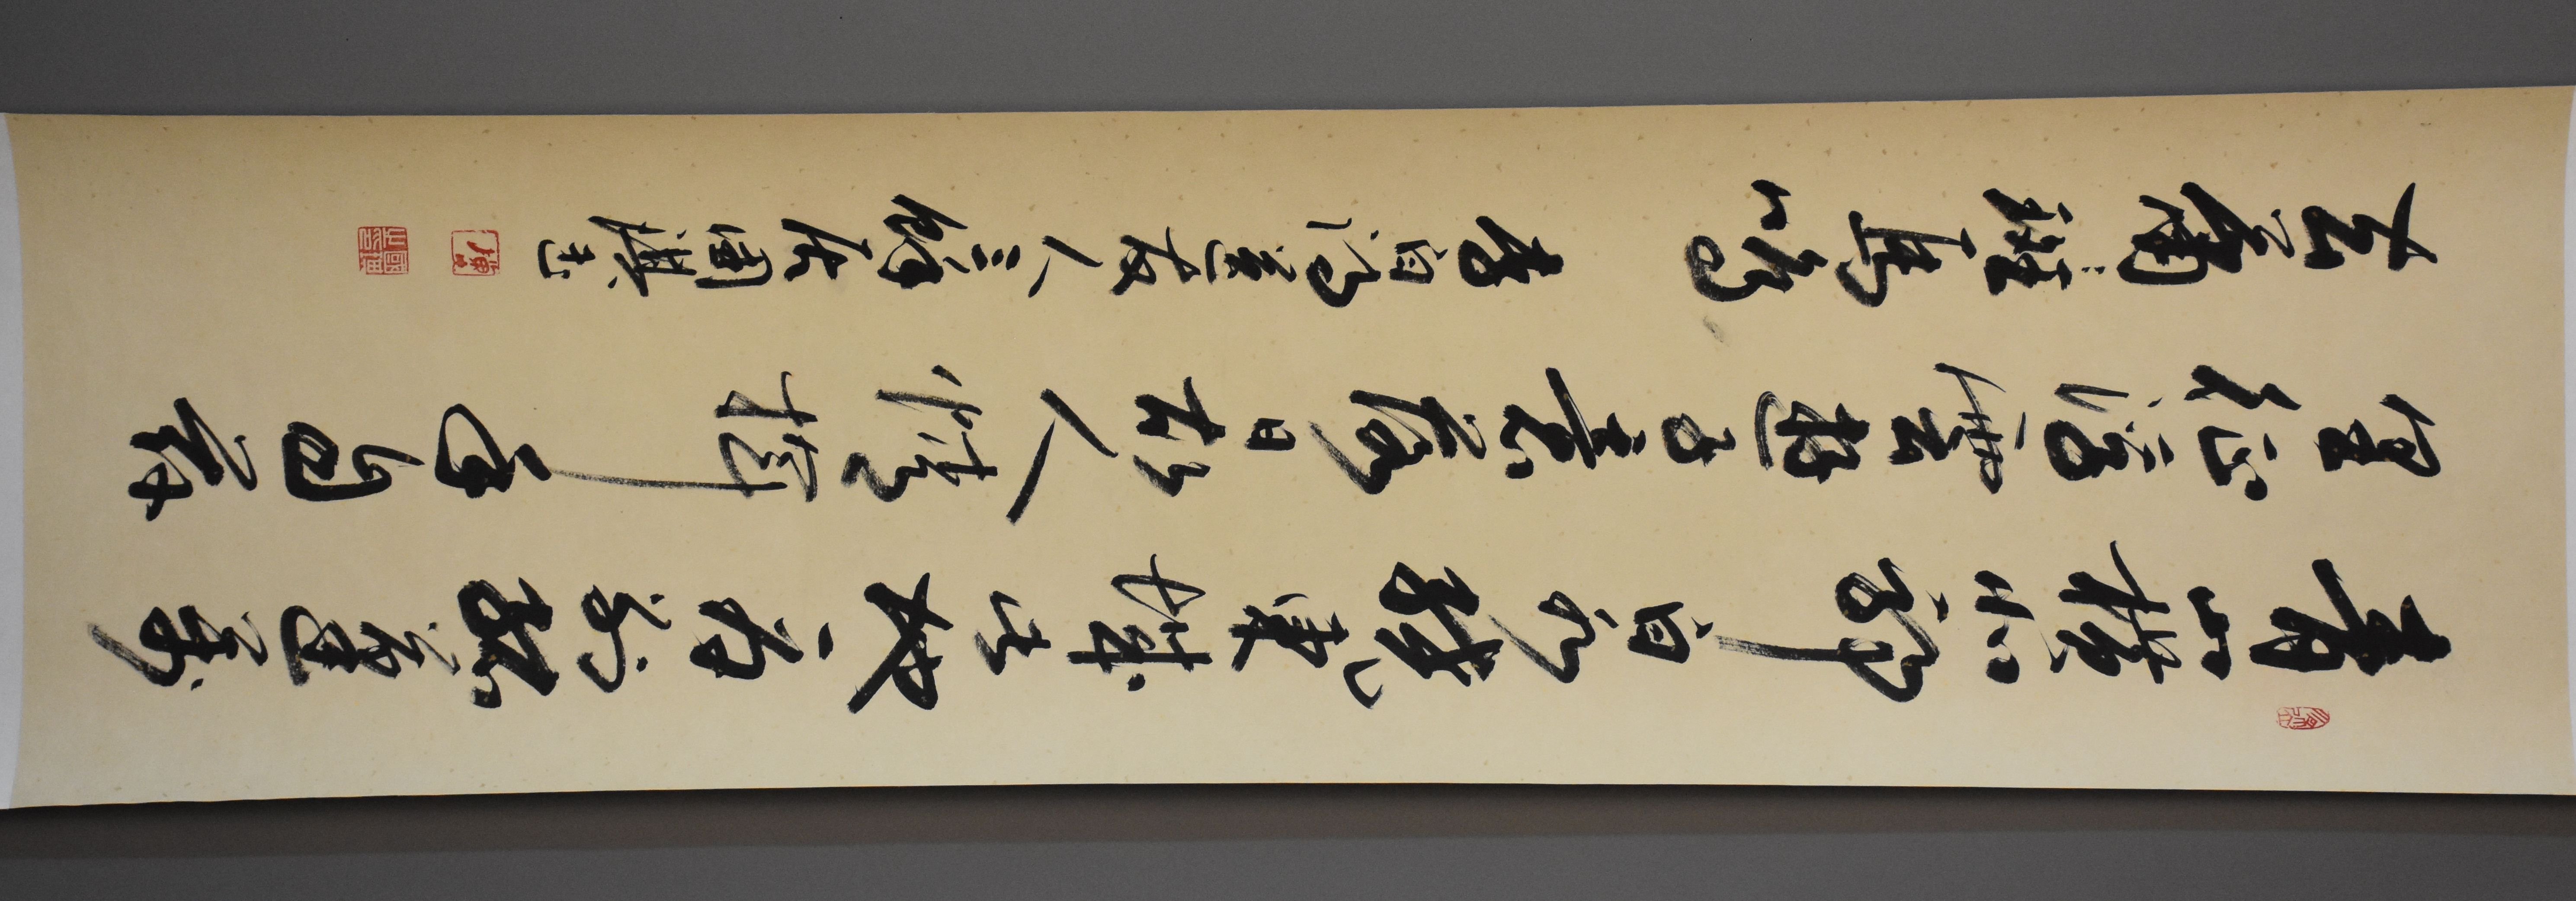 青山橫北郭白水繞東城此地一為別孤蓬萬
里征浮雲遊子意落日故人情揮手自茲
去蕭々班馬鳴 李白詩送友人